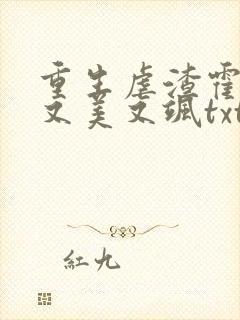 重生虐渣霍
又美又飒txt
红九